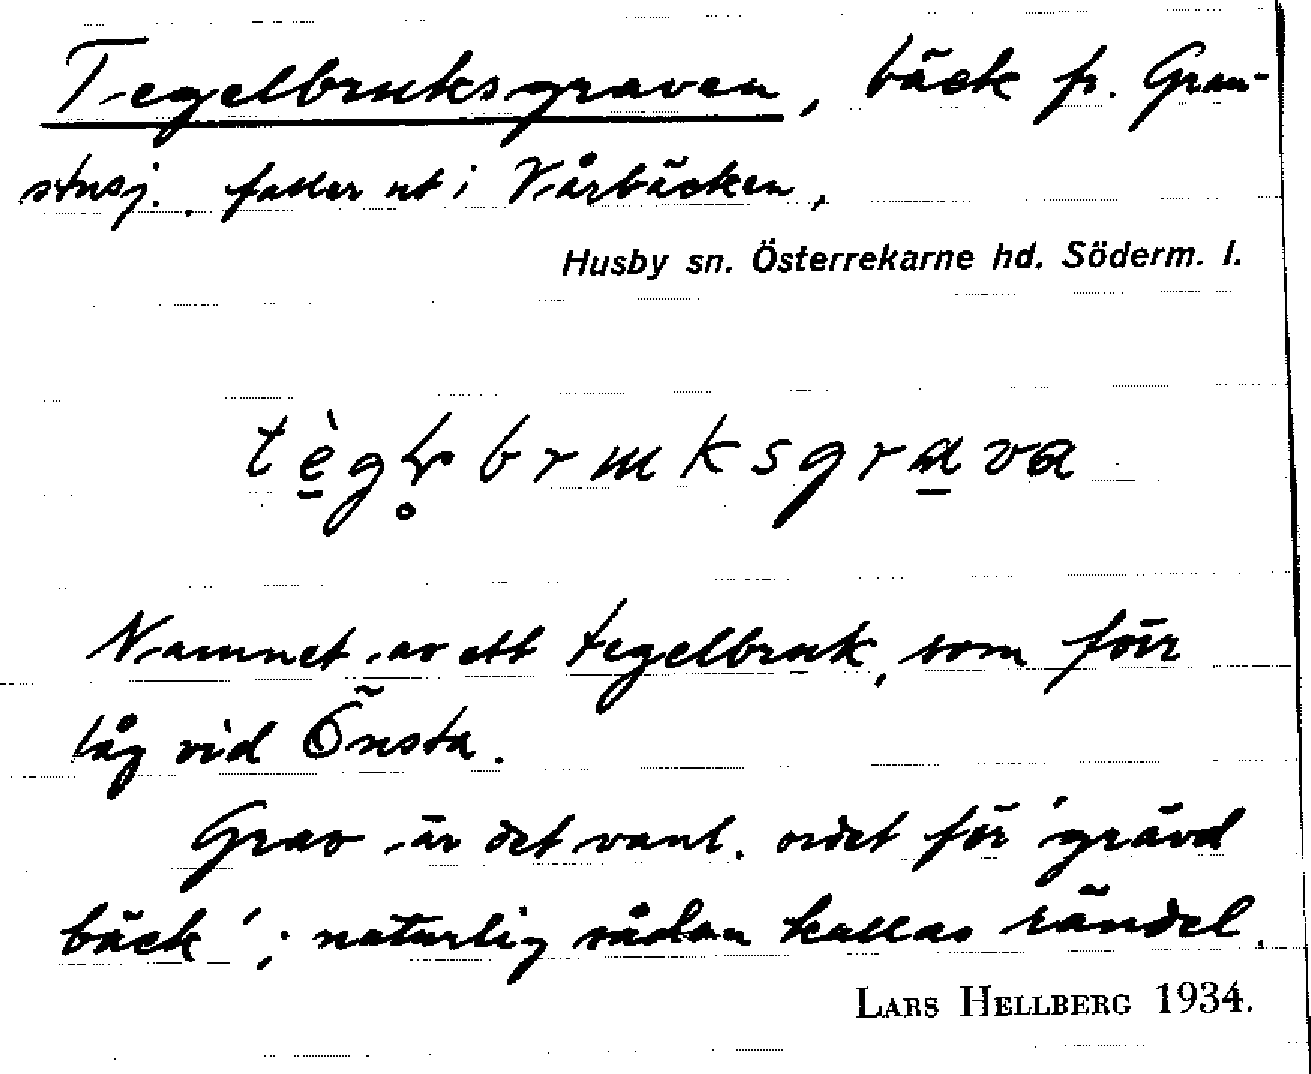 Tegelbruksgraven, bäck fr. Gran-
stusj. faller ut i Vårbäcken,
Husby sn. Österrekarne hd. Söderm. l.
Namnet av ett tegelbruk, som förr
låg vid Önsta.
Grav är det vanl. ordet för 'grävd
bäck'; naturlig sådan kallas rändel.
LARS HELLBERG 1934.